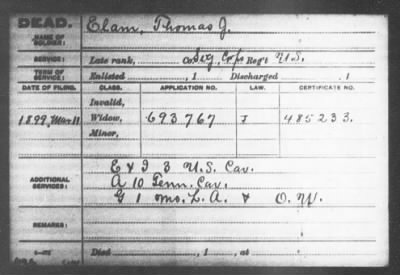 DEAD.
NAME OF SOLDIER: Elam, Thomas J.
SERVICE: Late rank, Co. Sig. Corps Reg't U.S.
TERM OF SERVICE: Enlisted , 1 Discharged , 1
DATE OF FILING. CLASS. APPLICATION NO. LAW. CERTIFICATE NO.
Invalid,
1899, Mar 11 Widow, 693767 J 485233.
Minor,
E & I 3 U.S. Cav.
ADDITIONAL SERVICES: A 10 Tenn. Cav.
G 1 Mo. L. A. & O. W.
REMARKS:
Died , 1 , at